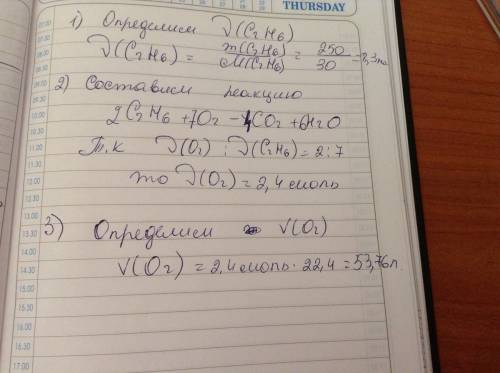 THURSDAY
1) Определим ν(C2H6)
ν(C2H6) = m(C2H6)/M(C2H6) = 250/30 = 8,3
2) Составим реакцию
2C2H6 + 7O2 - 4CO2 + 6H2O
Т.к ν(O2) : ν(C2H6) = 2:7
то ν(O2) = 2,4 моль
3) Определим V(O2)
V(O2) = 2,4 моль · 22,4 = 53,76 л.
07.00
07.30
08.00
08.30
09.00
09.30
10.00
10.30
11.00
11.30
12.00
12.30
13.00
13.30
14.00
14.30
15.00
15.30
16.00
16.30
17.00